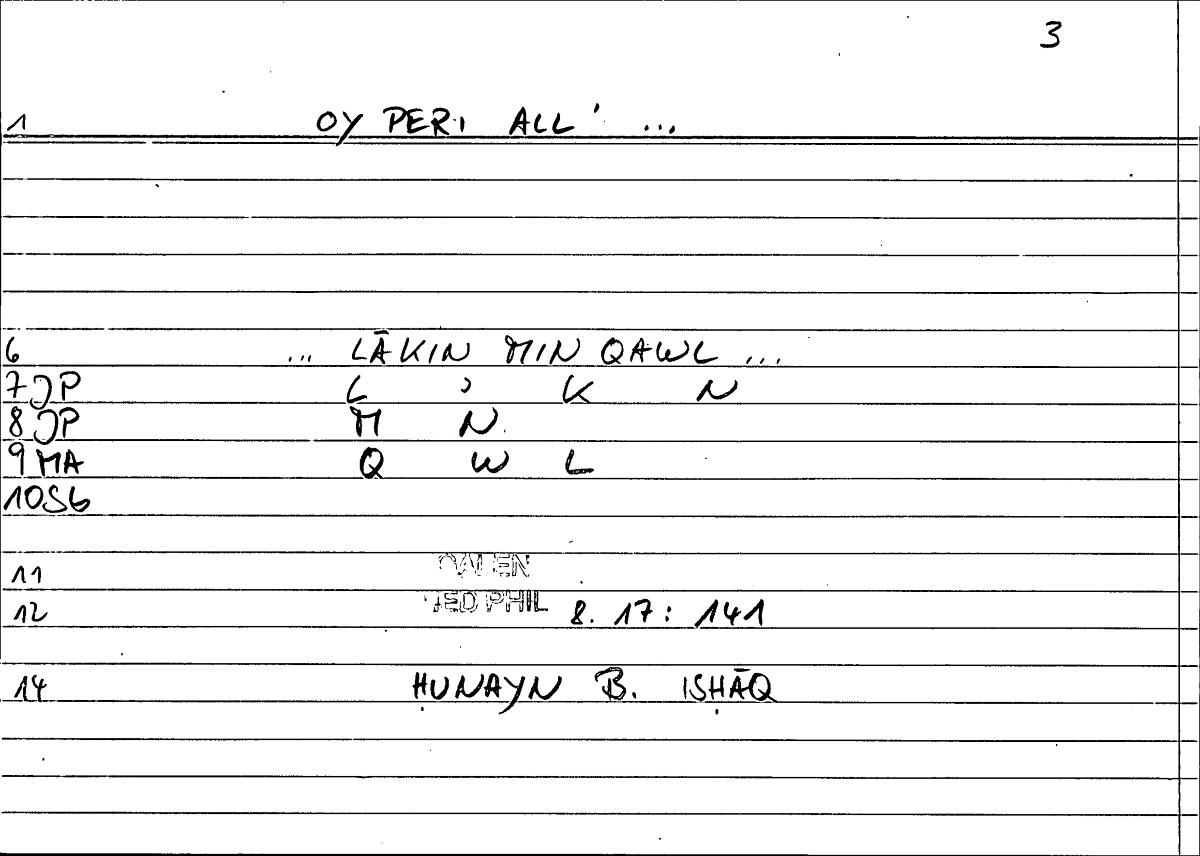 3
1 OY PERI ALL' ...
6 ... LĀKIN MIN QAWL ...
7 JP L ʾ K N
8 JP M N
9 MA Q W L
10 S6
11
12 MED PHIL 8. 17: 141
14 ḤUNAYN B. ISḤĀQ